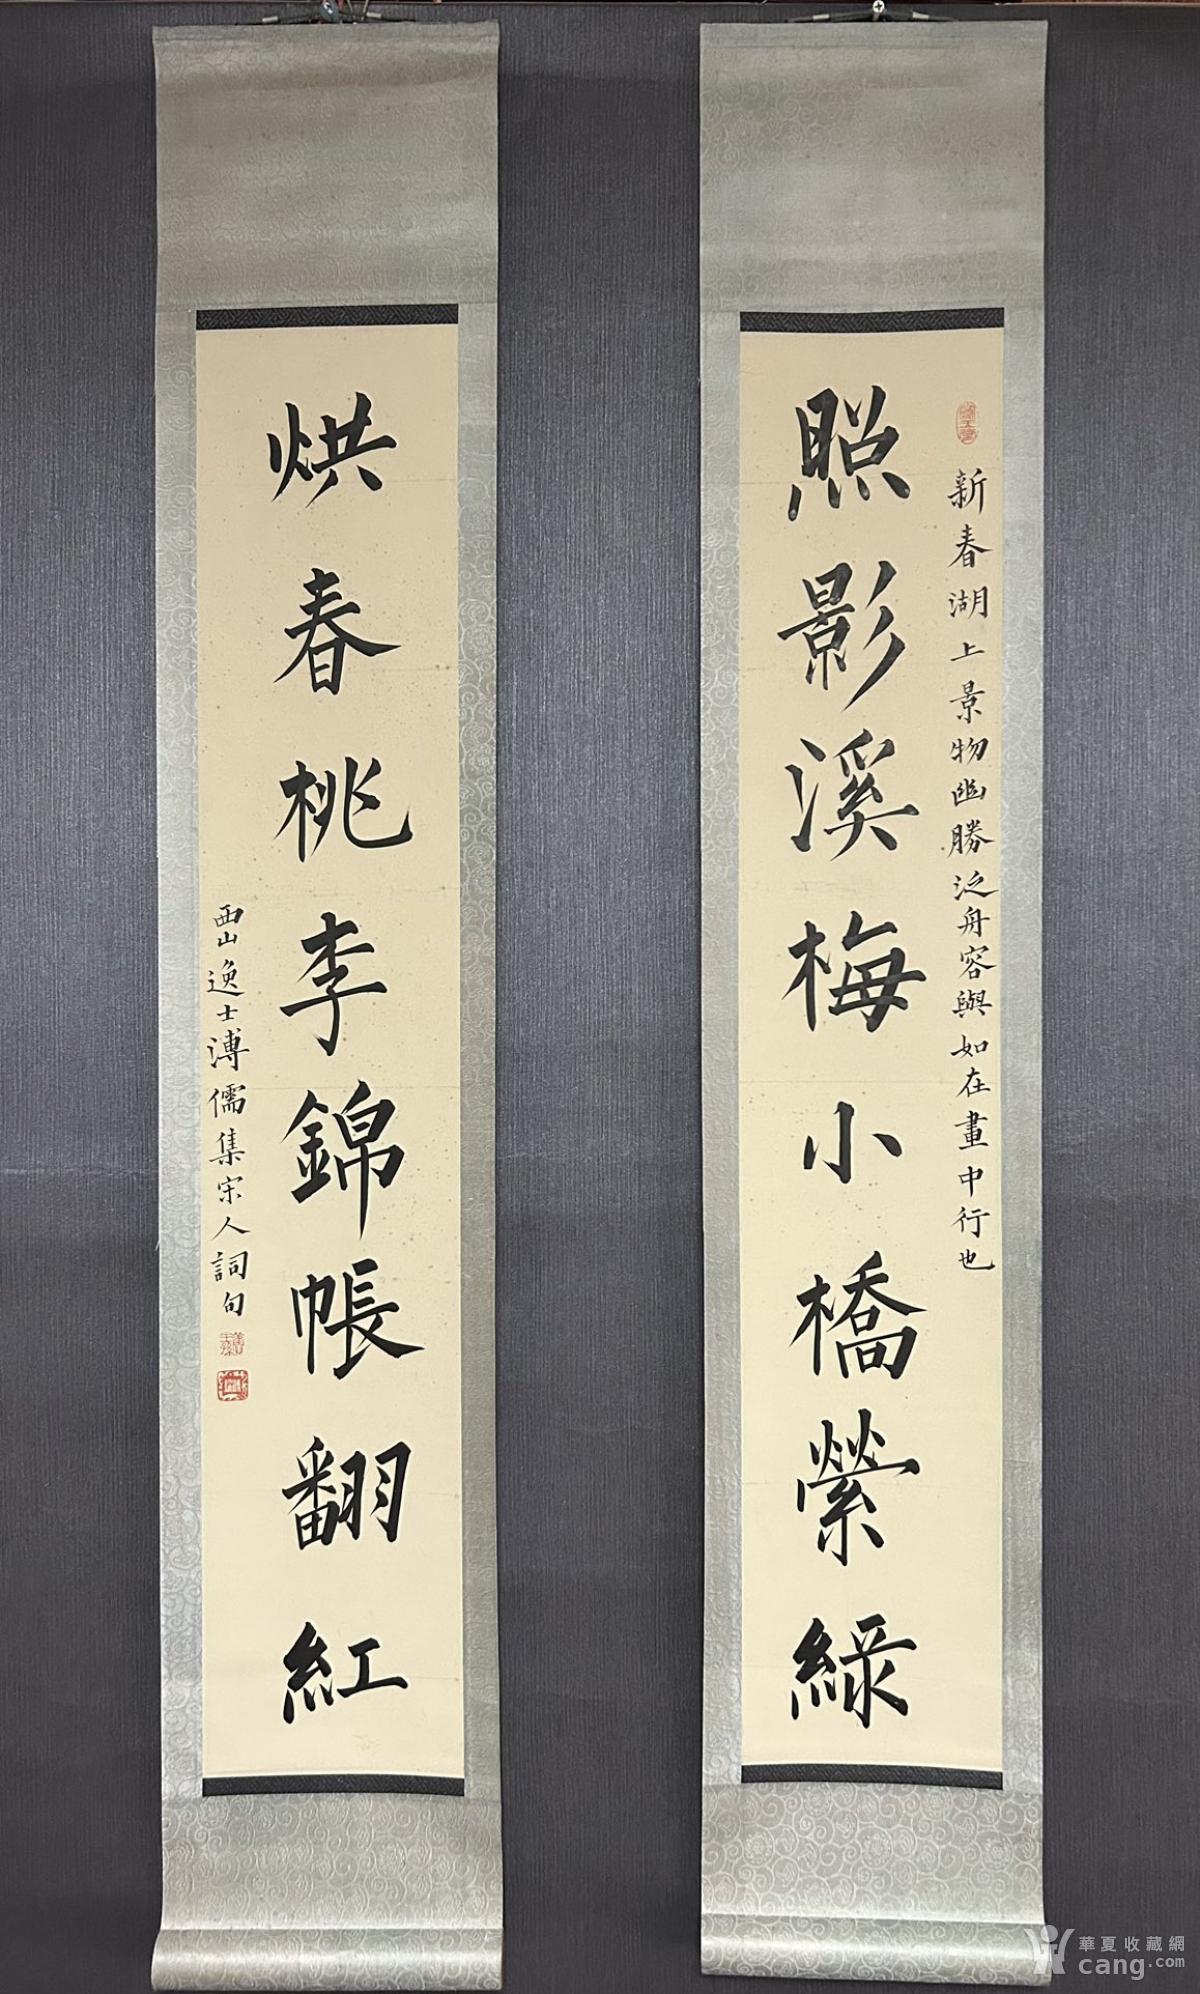 新春湖上景物幽勝泛舟容與如在畫中行也
照影溪梅小橋縈綠
烘春桃李錦帳翻紅
西山逸士溥儒集宋人詞句
華夏收藏網
cang.com